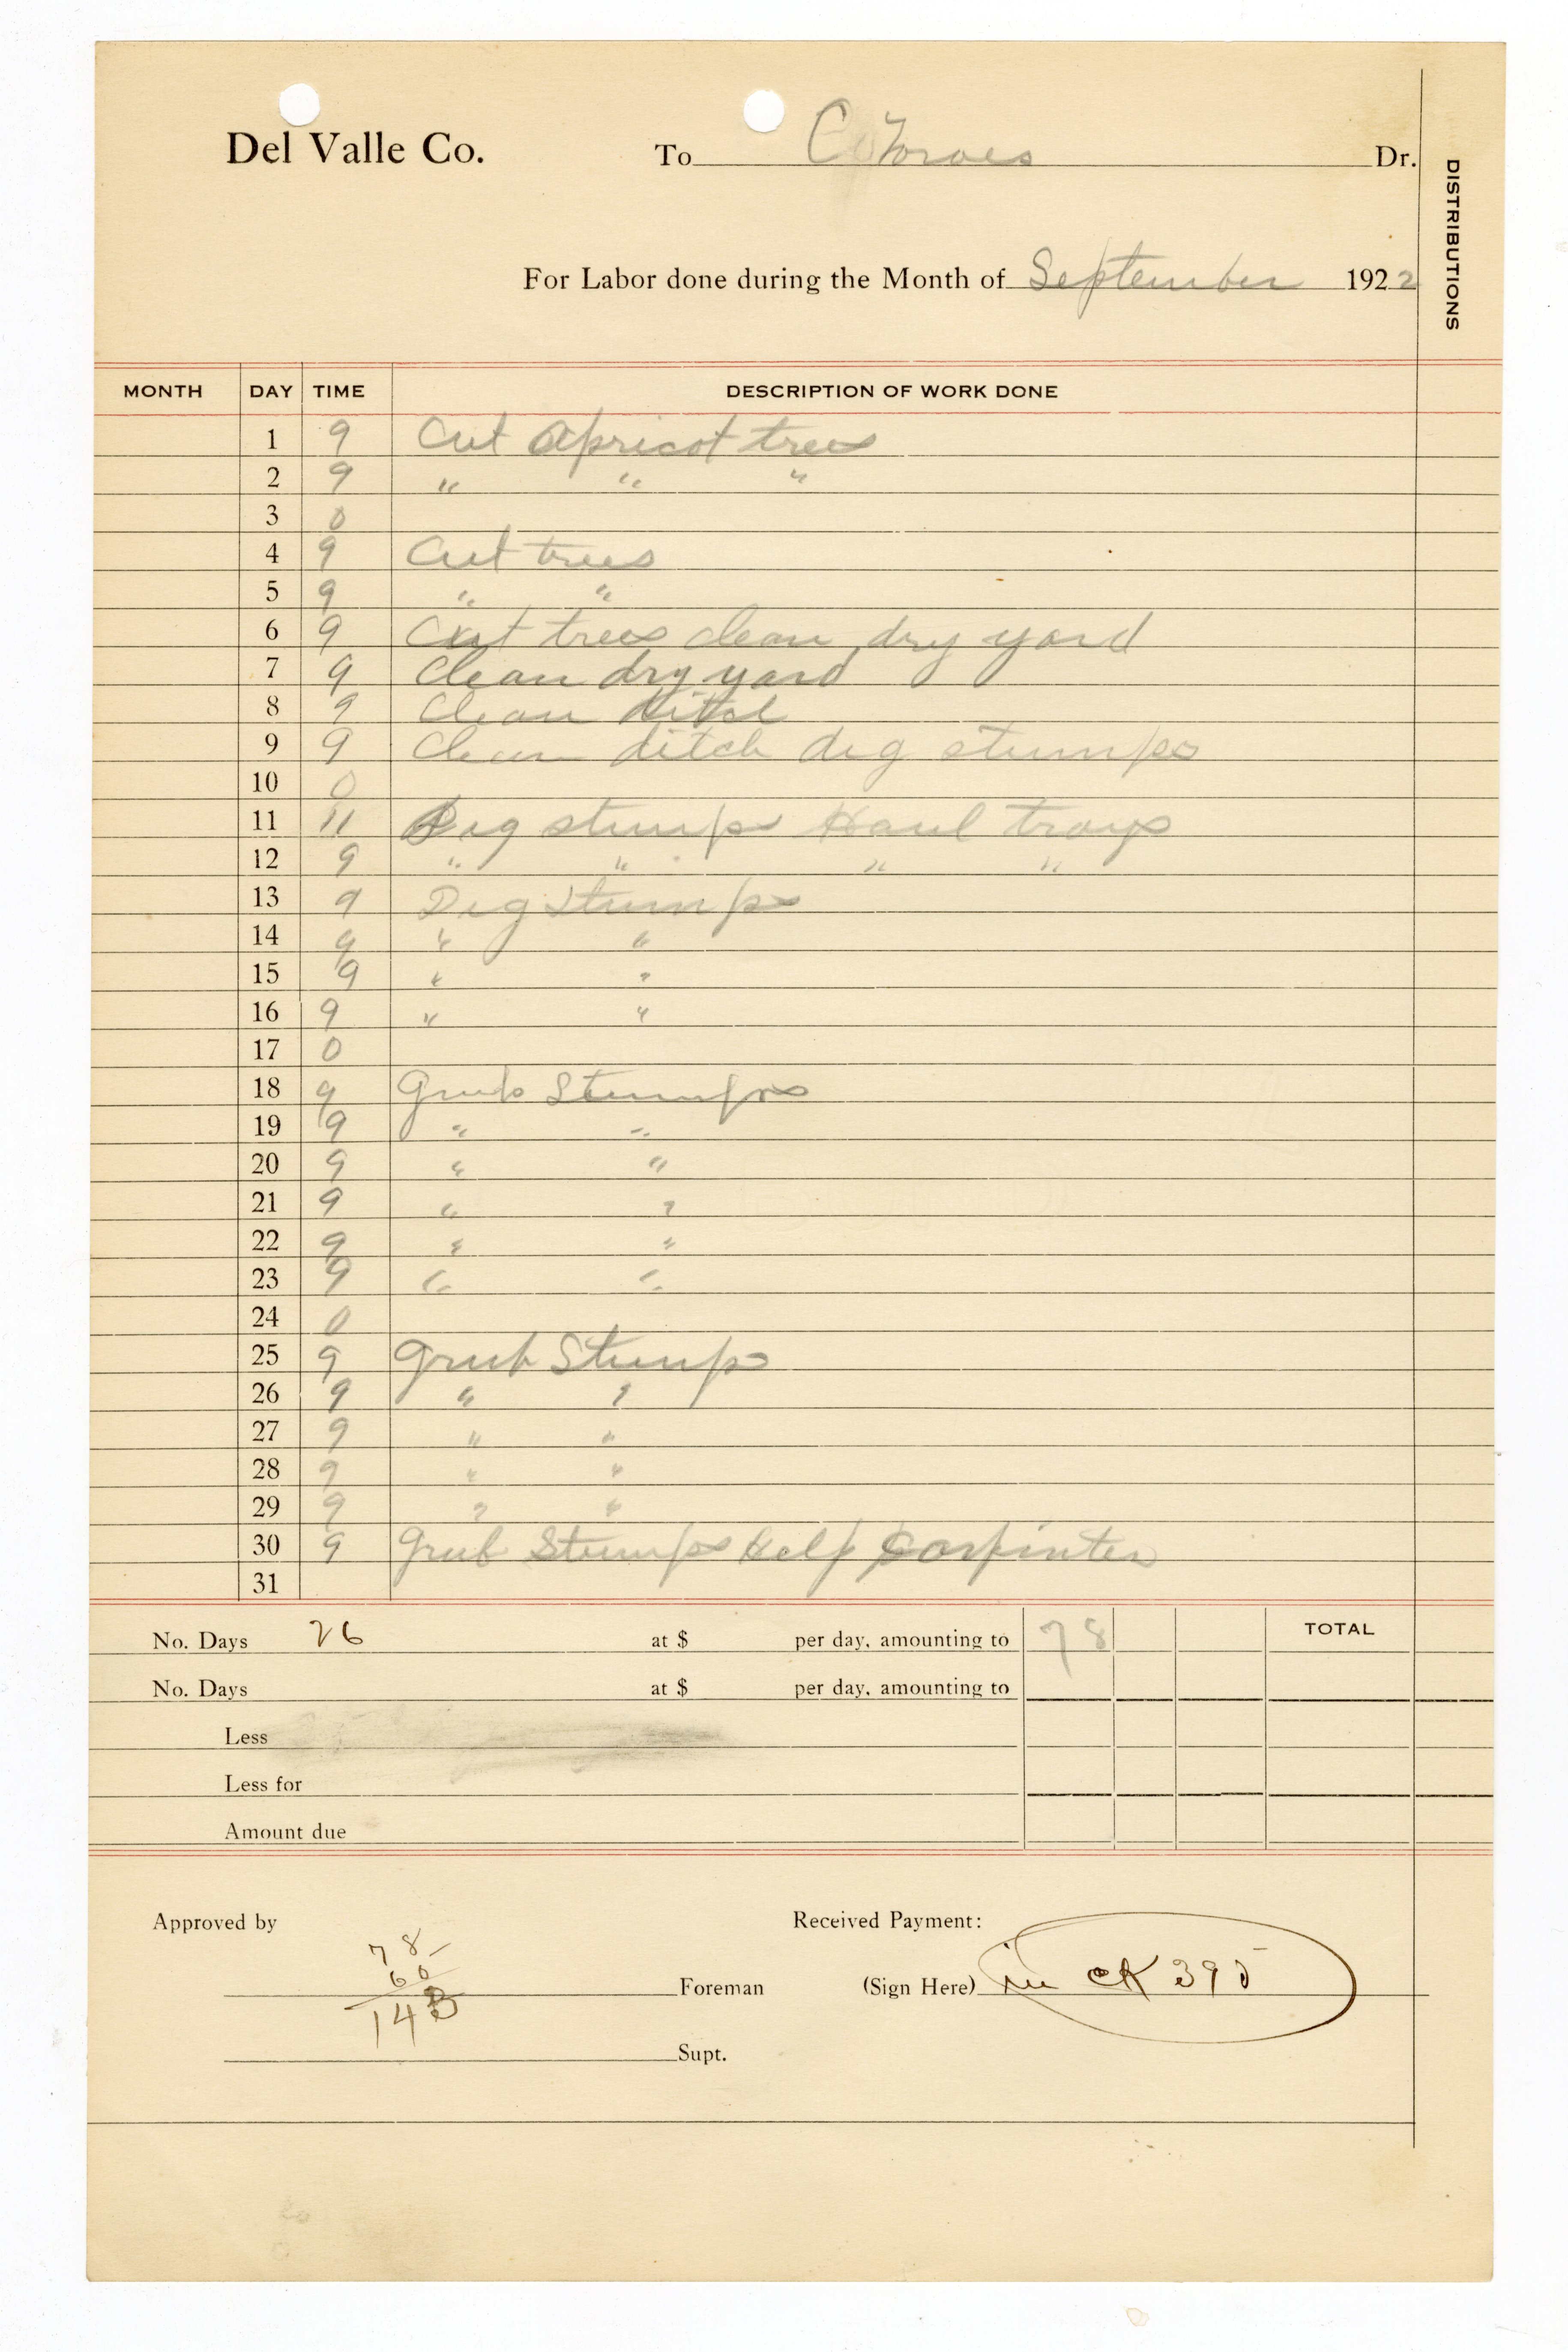 Del Valle Co. To C Dr.
DISTRIBUTIONS
For Labor done during the Month of September 1922
MONTH DAY TIME DESCRIPTION OF WORK DONE
1 9 Cut Apricot trees
2 9 " " "
3 0
4 9 Cut trees
5 9 " "
6 9 Cut trees clean dry yard
7 9 Clean dry yard
8 9 Clean ditch
9 9 Clean ditch dig stumps
10 0
11 11 Dig stumps Haul trays
12 9 " " " "
13 9 Dig Stumps
14 9 " "
15 9 " "
16 9 " "
17 0
18 9 Grub Stumps
19 9 " "
20 9 " "
21 9 " "
22 9 " "
23 9 " "
24 0
25 9 Grub Stumps
26 9 " "
27 9 " "
28 9 " "
29 9 " "
30 9 Grub Stumps Help Carpinter
31
No. Days 26 at $ per day, amounting to 78 TOTAL
No. Days at $ per day, amounting to
Less
Less for
Amount due
Approved by Received Payment:
78-
60
Foreman (Sign Here) in CK 395
Supt.